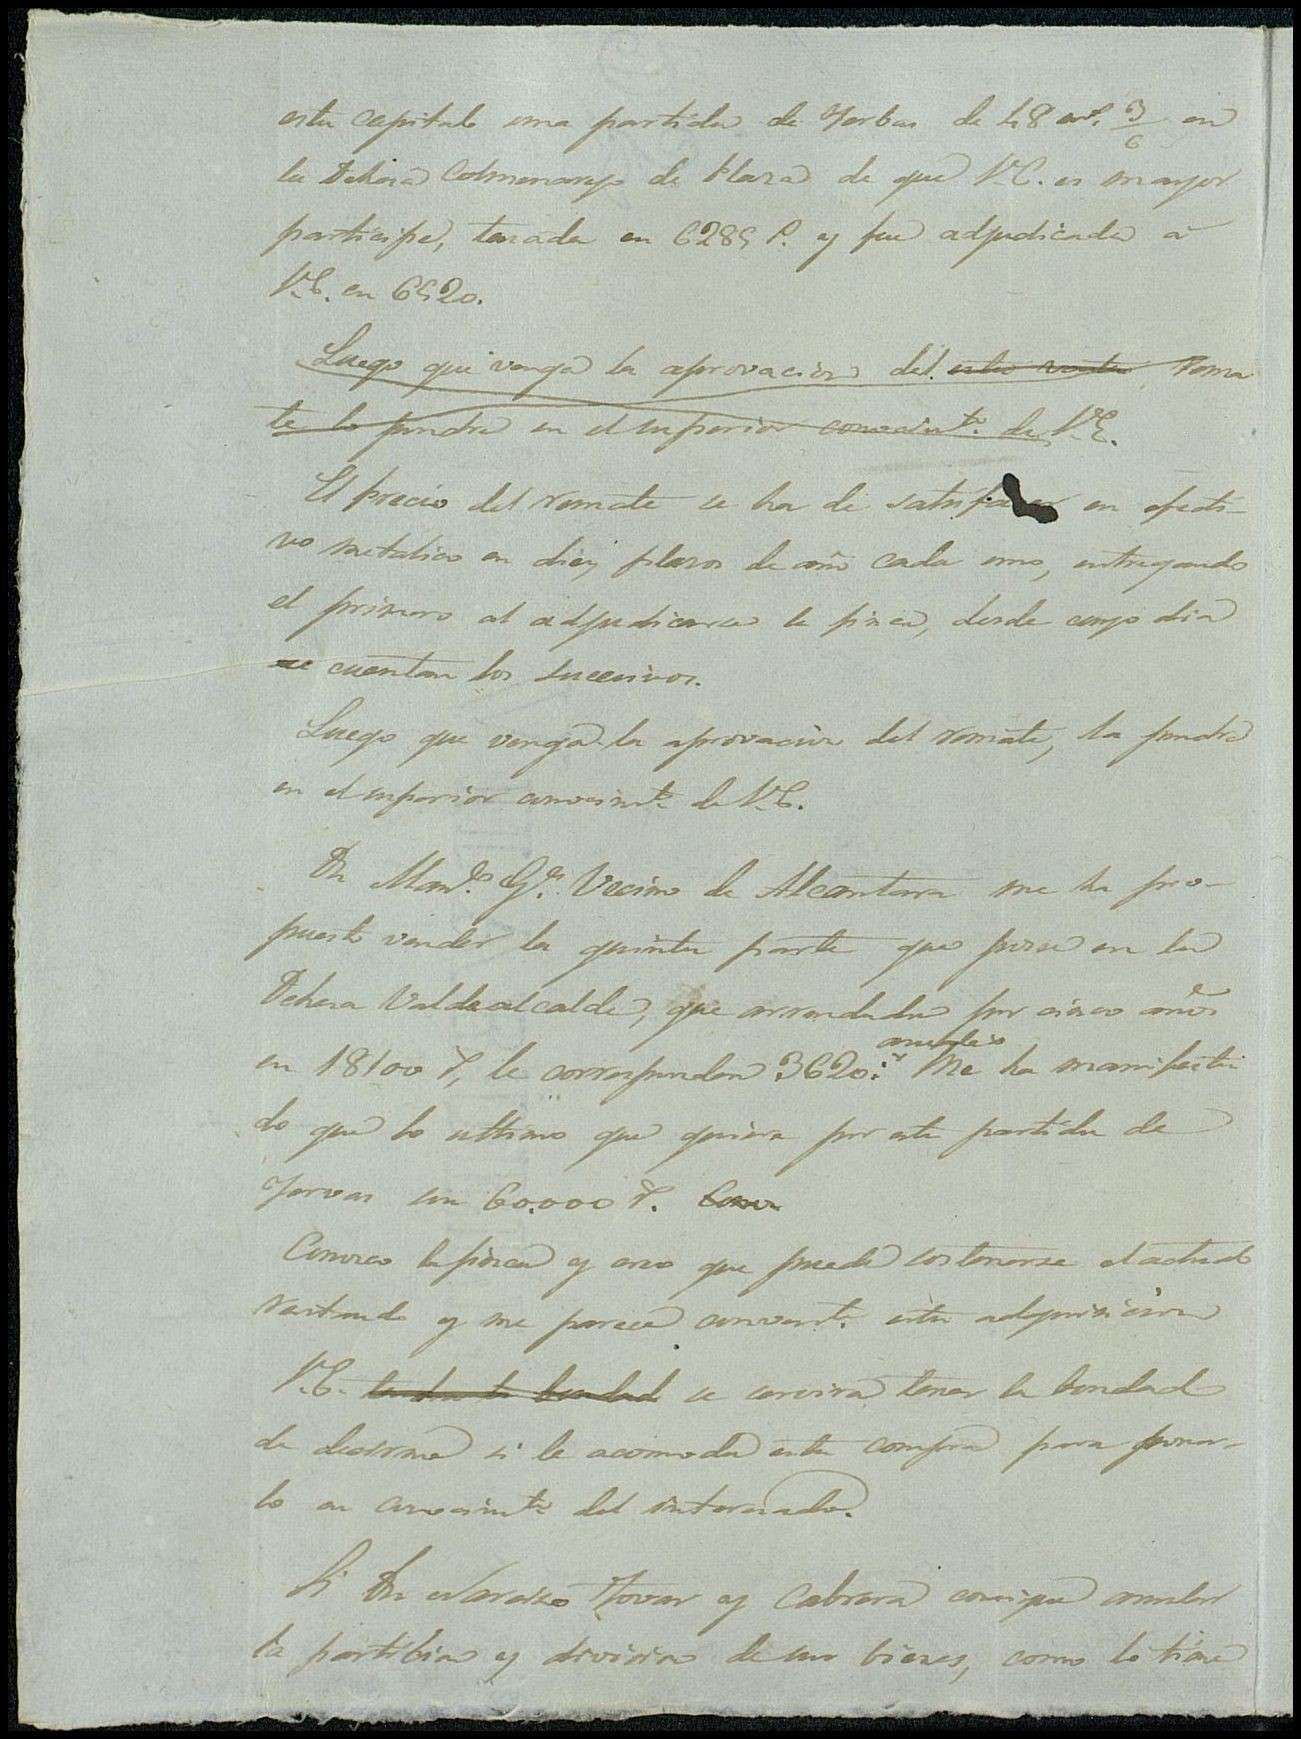 esta capital una partida de Yerbas de 48 3/6 en
la Dehesa Colmenarejo de Plaza de que V.E. es mayor
participe, tasada en 6285 r. y fue adjudicada á
V.E. en 6520.
Luego que venga la aprovacion del esta venta rema
te lo pondre en el superior conocimto. de V.E.
El precio del remate se ha de satisfacer en efecti-
vo metalico en diez plazos de año cada uno, entregando
el primero al adjudicarse la finca, desde cuyo dia
se cuentan los succesivos.
Luego que venga la aprovacion del remate, la pondre
en el superior conocimto. de V.E.
Dn Manl. Gª. Vecino de Alcantara me ha pro-
puesto vender la quinta parte que posee en la
Dehesa Valdealcalde, que arrendada por cinco años
anuales
en 18100 r, le corresponden 3620. Me ha manifesta
do que lo ultimo que quiere por esta partida de
Yervas son 60.000 r. Cono
Conozco la finca y creo que puede sostenerse el actual
rentando y me parece convente. esta adquisicion
V.E. tendra la bondad se servira tener la bondad
de decirme si le acomoda esta compra para poner-
lo en conocimto del interesado.
Si Dn Narciso Tovar y Cabrera consigue anular
la particion y division de sus bienes, como lo tiene